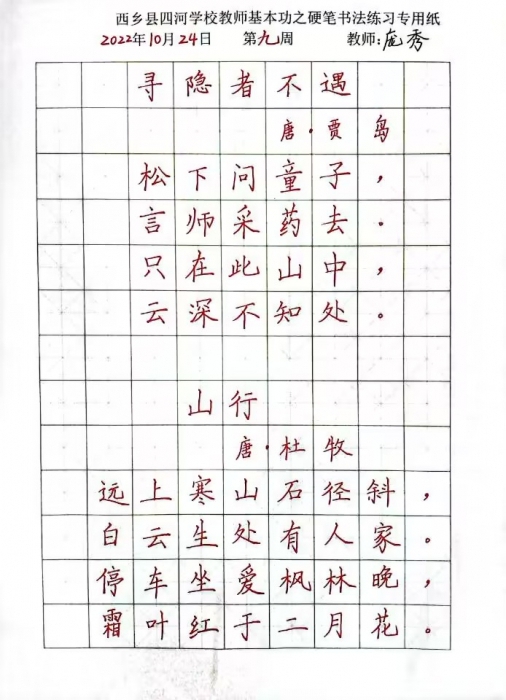 西乡县四河学校教师基本功之硬笔书法练习专用纸
2022年10月24日 第九周 教师:庞秀
寻隐者不遇
唐·贾岛
松下问童子,
言师采药去。
只在此山中,
云深不知处。
山行
唐·杜牧
远上寒山石径斜,
白云生处有人家。
停车坐爱枫林晚,
霜叶红于二月花。